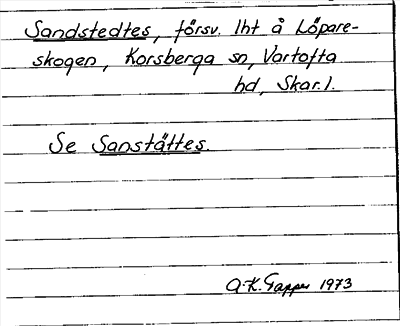 Sandstedtes, försv. lht å Löpare-
skogen, Korsberga sn, Vartofta
hd, Skar.l.
Se Sanstättes.
A-K. Tapper 1973